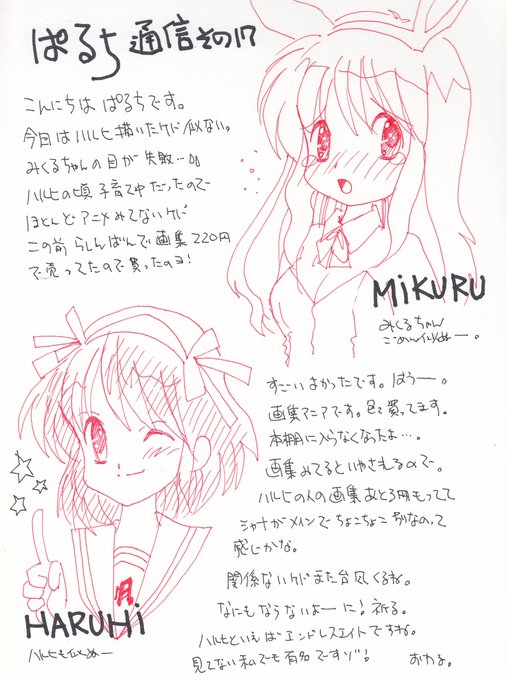 ぱるち通信その17
こんにちは ぱるちです。
今日はハルヒ描いたケド似ない。
みくるちゃんの目が失敗…
ハルヒの頃子育て中だったので
ほとんどアニメみてないケド
この前らしんばんで画集220円
で売ってたので買ったのヨ!
MiKURU
みくるちゃん
ごめん似ぬー。
すごーいよかったです。はうー。
画集マニアです。色々買ってます。
本棚に入らなくなったよ…。
画集みてるといやされるので。
ハルヒの人の画集あと3冊もってて
シャナがメインでちょこちょこ別なのって
感じかな。
関係ないケドまた台風くるね。
なにもならないよーに!祈る。
ハルヒといえばエンドレスエイトですね。
見てない私でも有名ですゾ!
おわる。
HARUHi
ハルヒも似ぬー